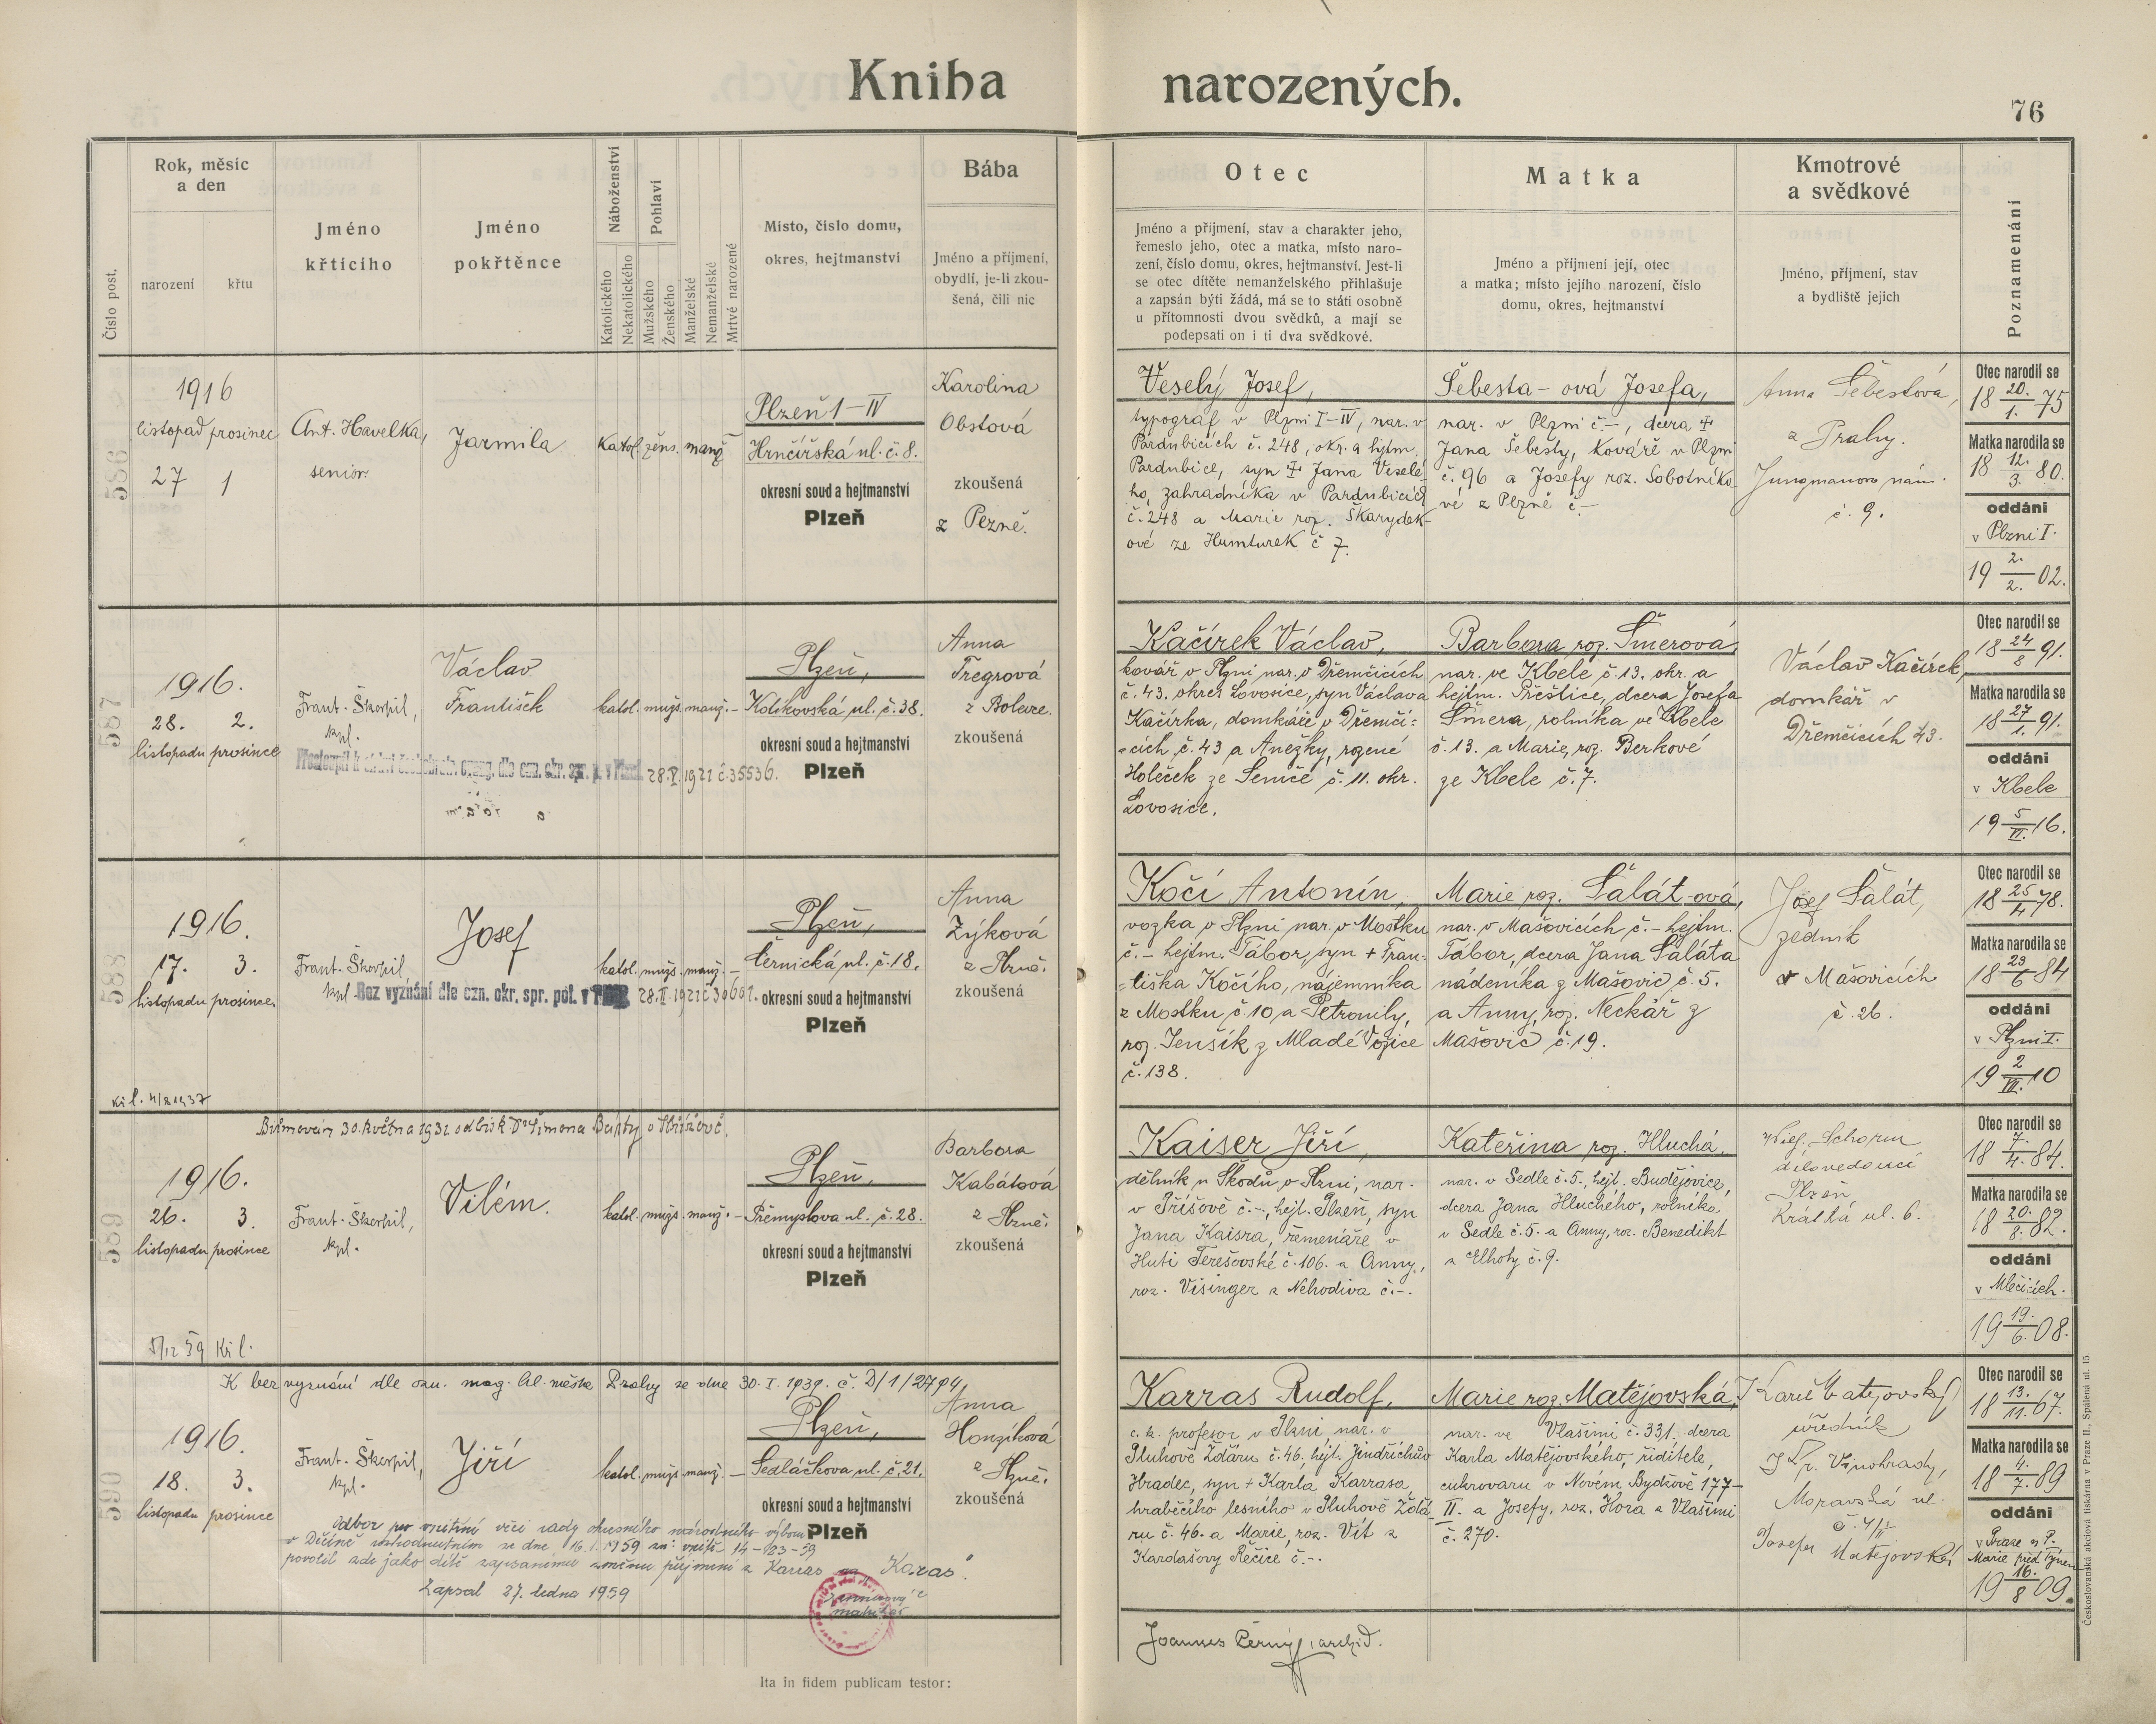 Kniha narozených.
76
Číslo post.
Rok, měsíc
a den
narození
křtu
Jméno
křtícího
Jméno
pokřtěnce
Náboženství
Katolického
Nekatolického
Pohlaví
Mužského
Ženského
Manželské
Nemanželské
Mrtvě narozené
Místo, číslo domu,
okres, hejtmanství
Bába
Jméno a příjmení,
obydlí, je-li zkou-
šená, čili nic
Otec
Jméno a příjmení, stav a charakter jeho,
řemeslo jeho, otec a matka, místo naro-
zení, číslo domu, okres, hejtmanství. Jest-li
se otec dítěte nemanželského přihlašuje
a zapsán býti žádá, má se to státi osobně
u přítomnosti dvou svědků, a mají se
podepsati on i ti dva svědkové.
Matka
Jméno a příjmení její, otec
a matka; místo jejího narození, číslo
domu, okres, hejtmanství
Kmotrové
a svědkové
Jméno, příjmení, stav
a bydliště jejich
Poznamenání
586
1916
listopad prosinec
27 1
Ant. Havelka,
senior.
Jarmila
Katol. žens. manž
Plzeň 1-IV
Hrnčířská ul. č. 8.
okresní soud a hejtmanství
Plzeň
Karolina
Obstová
zkoušená
z Plzně.
Veselý Josef,
typograf v Plzni I-IV, nar. v
Pardubicích č. 248, okr. a hejtm.
Pardubice, syn † Jana Veselé-
ho, zahradníka v Pardubicích
č. 248 a Marie roz. Skarydek-
ové ze Humburek č 7.
Šebesta-ová Josefa,
nar. v Plzni č. -, dcera †
Jana Šebesty, kováře v Plzni
č. 96 a Josefy roz. Sobotníko-
vé z Plzně č. -
Anna Šebestová,
z Prahy.
Jungmanovo nám.
č. 9.
Otec narodil se
18 20./1. 75
Matka narodila se
18 12./3. 80.
oddáni
v Plzni I.
19 2./2. 02.
587
1916.
28. 2.
listopadu prosince
Frant. Škorpil,
kpl.
Václav
František
katol. mužs. manž. -
Plzeň,
Kolikovská ul. č. 38.
28. V. 1921 č. 35536.
okresní soud a hejtmanství
Plzeň
Anna
Tregrová
z Bolevce.
zkoušená
Kačírek Václav,
kovář v Plzni nar. v Dřemčicích
č. 43. okres Lovosice, syn Václava
Kačírka, domkáře v Dřemči-
cích č. 43 a Anežky, rozené
Holeček ze Semče č. 11. okr.
Lovosice.
Barbora roz. Šmerová,
nar. ve Kbele č. 13. okr. a
hejtm. Přeštice, dcera Josefa
Šmera, rolníka ve Kbele
č. 13. a Marie, roz. Berkové
ze Kbele č. 7.
Václav Kačírek,
domkář v
Dřemčicích 43.
Otec narodil se
18 24/8 91.
Matka narodila se
18 27/1. 91.
oddáni
v Kbele
19 5/VI. 16.
588
1916.
17. 3.
listopadu prosince.
Frant. Škorpil,
kpl.
Josef
katol. mužs. manž. -
Bez vyznání dle ozn. okr. spr. pol. v
Plzeň,
Černická ul. č. 18.
okresní soud a hejtmanství
Plzeň
Anna
Zýková
z Plzně.
zkoušená
Kočí Antonín,
vozka v Plzni nar. v Mostku
č. - hejtm. Tábor, syn + Fran-
tiška Kočího, nájemníka
z Mostku č. 10 a Petronily,
roz. Jenšík z Mladé Vožice
č. 138.
Marie roz. Šalát-ová,
nar. v Mašovicích č. - hejtm.
Tábor, dcera Jana Šaláta
nádeníka z Mašovic č. 5.
a Anny, roz. Neckář z
Mašovic č. 19.
Josef Šalát,
zedník
v Mašovicích
č. 26.
Otec narodil se
18 25/4 78.
Matka narodila se
18 23/6 84
oddáni
v Plzni I.
19 2/III. 10
Kř. l. 4/8 1937
589
Biřmován 30. května 1931 od bisk. Dr Šimona Bárty
1916.
26. 3.
listopadu prosince
Frant. Škorpil,
kpl.
Vilém.
katol. mužs. manž. -
Plzeň,
Přemyslova ul. č. 28.
okresní soud a hejtmanství
Plzeň
Barbora
Kabátová
z Plzně.
zkoušená
Kaiser Jiří,
dělník u Škodů v Plzni, nar.
v Příšově č. -, hejt. Plzeň, syn
Jana Kaisra, řemenáře v
Huti Terešovské č. 106. a Anny,
roz. Visinger z Nehodiva č. -.
Kateřina roz. Hluchá,
nar. v Sedle č. 5., hejt. Budějovice,
dcera Jana Hluchého, rolníka
v Sedle č. 5. a Anny, roz. Benedikt
z Lhoty č. 9.
Schorm
dílovedoucí
Plzeň,
Krátká ul. 6.
Otec narodil se
18 7./4. 84.
Matka narodila se
18 20./8. 82.
oddáni
v Mlečicích.
19 19./6. 08.
5/12 59 Kř. l.
590
K bez vyznání dle ozn. mag. hl. města Prahy ze dne 30. I. 1939. č. D/1/2794,
1916.
18. 3.
listopadu prosince
Frant. Škorpil,
kpl.
Jiří
katol. mužs. manž. -
Plzeň,
Sedláčkova ul. č. 21.
okresní soud a hejtmanství
Plzeň
Anna
Honzíková
z Plzně.
zkoušená
Odbor pro vnitřní věci rady okresního národního výboru
v Děčíně rozhodnutím ze dne 16. 1. 1959 zn: vnitř. 14-123-59
povolil zde jako dítě zapsanému změnu příjmení z Karras na "Karas".
Zapsal 27. ledna 1959
matrikář
Karras Rudolf,
c. k. profesor v Plzni, nar. v
Pluhově Žďáru č. 46. hejt. Jindřichův
Hradec, syn + Karla Karrasa,
hraběcího lesního v Pluhově Žďá-
ru č. 46. a Marie, roz. Vít z
Kardašovy Řečice č. -.
Marie roz. Matějovská,
nar. ve Vlašimi č. 331. dcera
Karla Matějovského, ředitele,
cukrovaru v Novém Bydžově 177-
II. a Josefy, roz. Hora z Vlašimi
č. 270.
Karel Matějovský
úředník
Vinohrady,
Moravská ul.
Josefa Matějovská
Otec narodil se
18 13./11. 67.
Matka narodila se
18 4./7. 89
oddáni
v Praze u P.
Marie před Týnem
19 16./8 09.
Ita in fidem publicam testor:
Joannes Černý, archid.
Československá akciová tiskárna v Praze II., Spálená ul. 15.